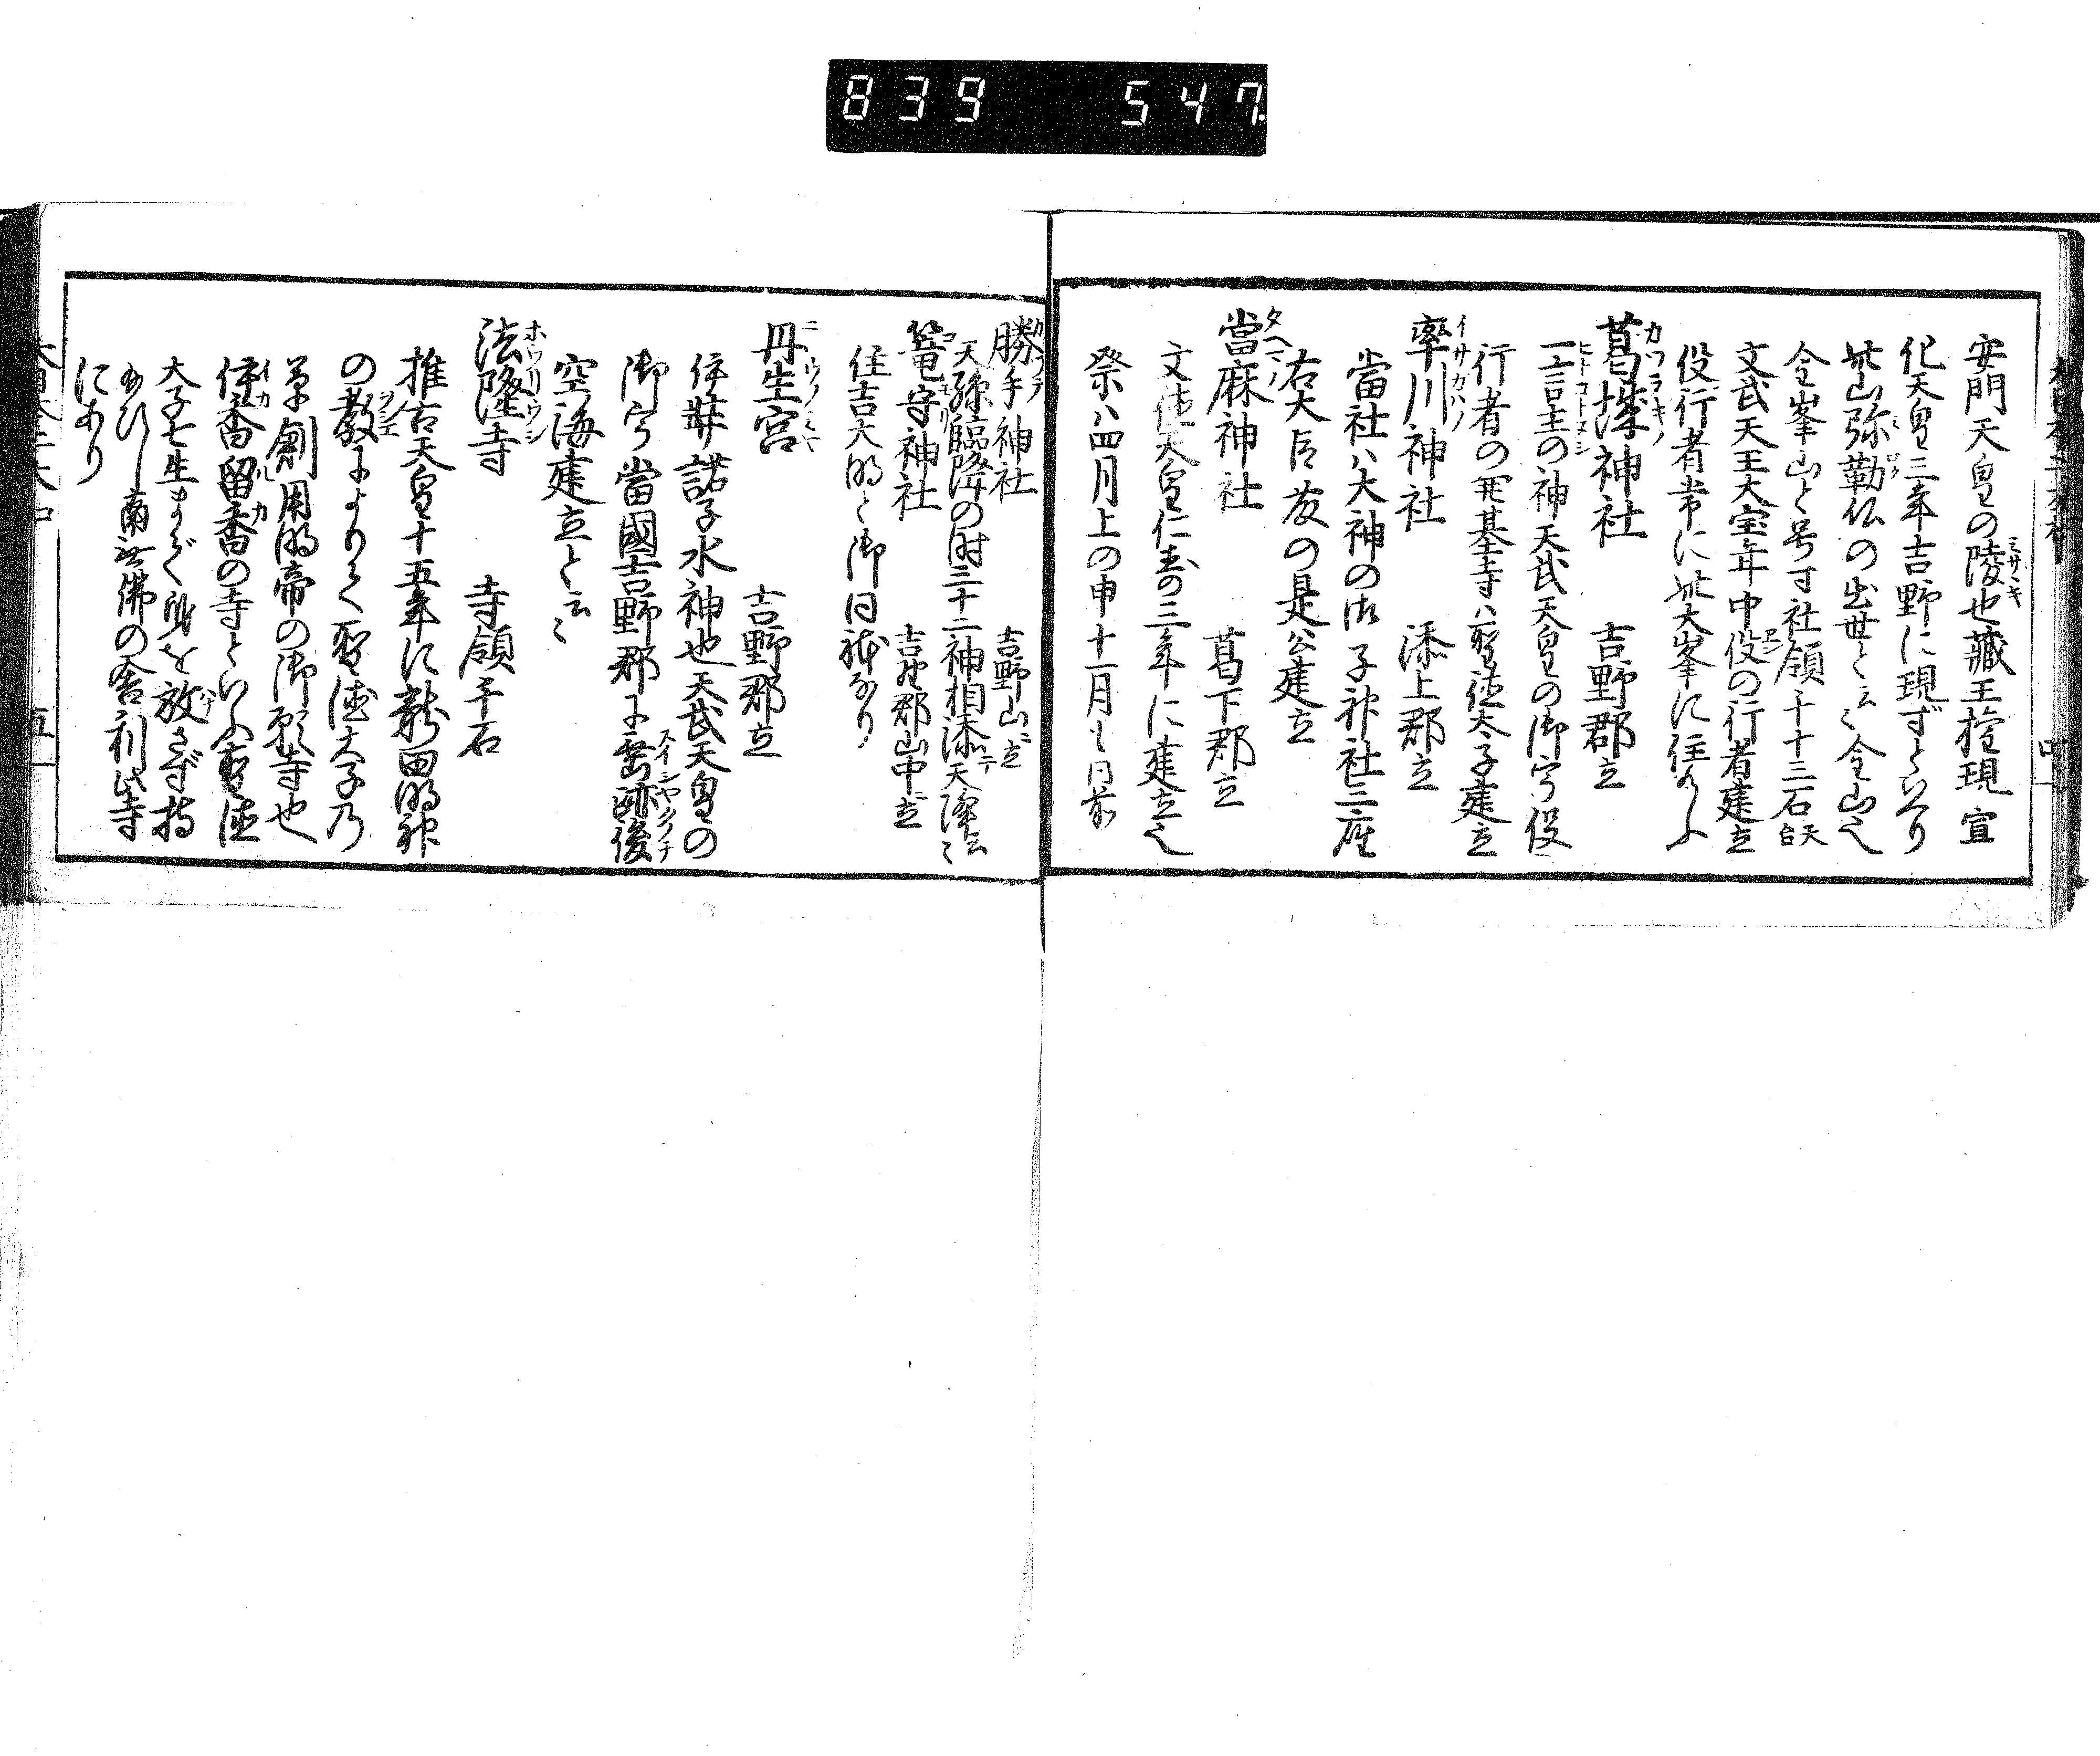 839 547
安閑天皇の陵也藏王権現宣
化天皇三年吉野に現ずといへり
此山弥勒仏の出世と云〻金山又
金峯山と号す社領千十三石天台
文武天王大宝年中役の行者建立
役行者常に此大峯に住給ふ
葛城神社 吉野郡立
一言主の神天武天皇の御宇役
行者の開基寺ハ聖徳太子建立
率川神社 添上郡立
當社ハ大神の御子神社三座
右大臣藤の是公建立
當麻神社 葛下郡立
文徳天皇仁寿の三年に建立也
祭ハ四月上の申十一月も同前
勝手神社 吉野山ニ立
天孫臨降の時三十二神相添テ天降云〻
篭守神社 吉野郡山中ニ立
住吉大明と御同躰なり
丹生宮 吉野郡立
伊弉諾子水神也天武天皇の
御宇當國吉野郡に垂跡後
空海建立と云〻
法隆寺 寺領千石
推古天皇十五年に龍田明神
の教によりて聖徳太子乃
草創用明帝の御願寺也
伊香留香の寺といふ聖徳
太子七生まで身を放さず持
給ひし南無佛の舎利此寺
にあり